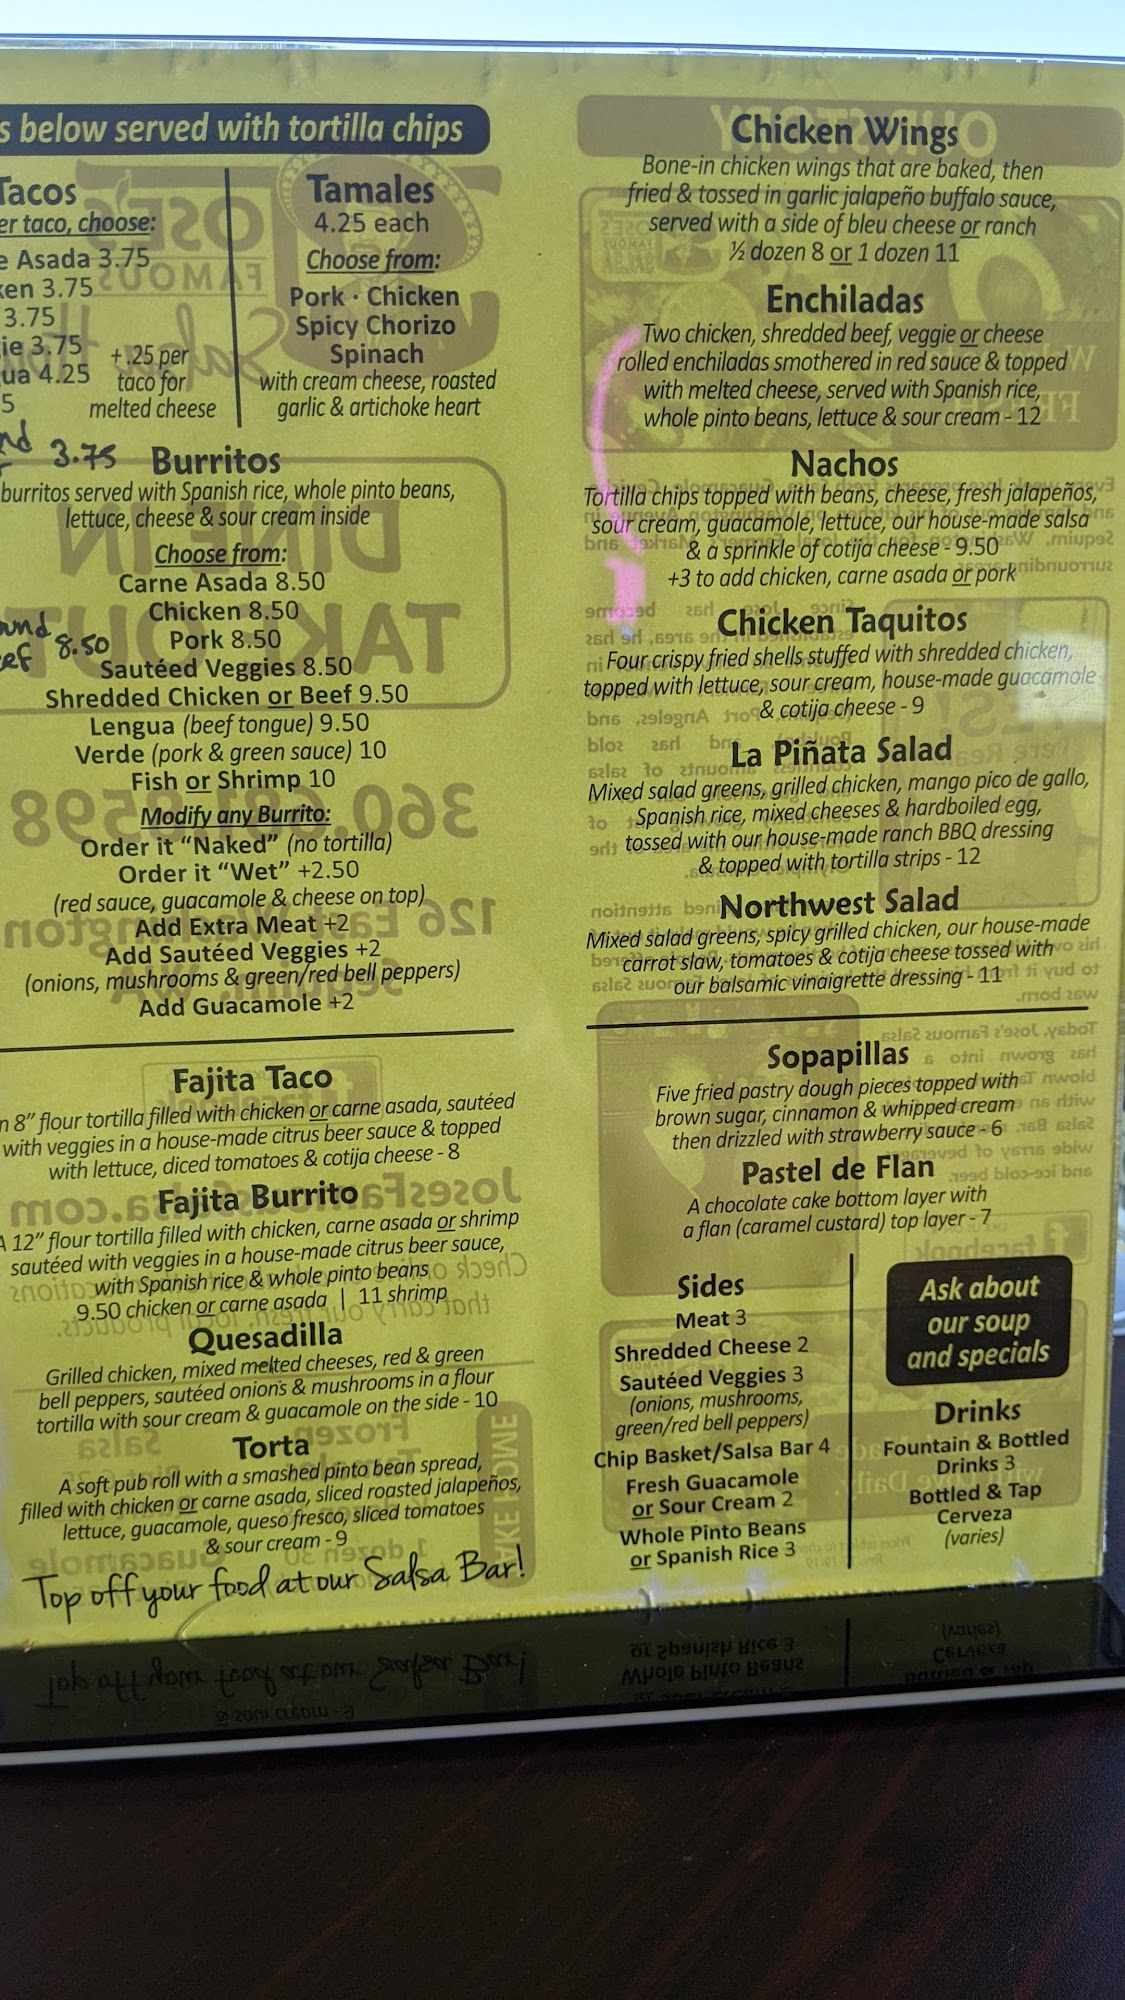 s below served with tortilla chips
Tacos
er taco, choose:
e Asada 3.75
ken 3.75
3.75
ie 3.75
ua 4.25
5
+.25 per
taco for
melted cheese
3.75
Tamales
4.25 each
Choose from:
Pork · Chicken
Spicy Chorizo
Spinach
with cream cheese, roasted
garlic & artichoke heart
Burritos
burritos served with Spanish rice, whole pinto beans,
lettuce, cheese & sour cream inside
Choose from:
Carne Asada 8.50
Chicken 8.50
Pork 8.50
8.50
Sautéed Veggies 8.50
Shredded Chicken or Beef 9.50
Lengua (beef tongue) 9.50
Verde (pork & green sauce) 10
Fish or Shrimp 10
Modify any Burrito:
Order it “Naked” (no tortilla)
Order it “Wet” +2.50
(red sauce, guacamole & cheese on top)
Add Extra Meat +2
Add Sautéed Veggies +2
(onions, mushrooms & green/red bell peppers)
Add Guacamole +2
Fajita Taco
n 8” flour tortilla filled with chicken or carne asada, sautéed
with veggies in a house-made citrus beer sauce & topped
with lettuce, diced tomatoes & cotija cheese - 8
Fajita Burrito
A 12” flour tortilla filled with chicken, carne asada or shrimp
sautéed with veggies in a house-made citrus beer sauce,
with Spanish rice & whole pinto beans
9.50 chicken or carne asada | 11 shrimp
Quesadilla
Grilled chicken, mixed melted cheeses, red & green
bell peppers, sautéed onions & mushrooms in a flour
tortilla with sour cream & guacamole on the side - 10
Torta
A soft pub roll with a smashed pinto bean spread,
filled with chicken or carne asada, sliced roasted jalapeños,
lettuce, guacamole, queso fresco, sliced tomatoes
& sour cream - 9
Top off your food at our Salsa Bar!
Chicken Wings
Bone-in chicken wings that are baked, then
fried & tossed in garlic jalapeño buffalo sauce,
served with a side of bleu cheese or ranch
½ dozen 8 or 1 dozen 11
Enchiladas
Two chicken, shredded beef, veggie or cheese
rolled enchiladas smothered in red sauce & topped
with melted cheese, served with Spanish rice,
whole pinto beans, lettuce & sour cream - 12
Nachos
Tortilla chips topped with beans, cheese, fresh jalapeños,
sour cream, guacamole, lettuce, our house-made salsa
& a sprinkle of cotija cheese - 9.50
+3 to add chicken, carne asada or pork
Chicken Taquitos
Four crispy fried shells stuffed with shredded chicken,
topped with lettuce, sour cream, house-made guacamole
& cotija cheese - 9
La Piñata Salad
Mixed salad greens, grilled chicken, mango pico de gallo,
Spanish rice, mixed cheeses & hardboiled egg,
tossed with our house-made ranch BBQ dressing
& topped with tortilla strips - 12
Northwest Salad
Mixed salad greens, spicy grilled chicken, our house-made
carrot slaw, tomatoes & cotija cheese tossed with
our balsamic vinaigrette dressing - 11
Sopapillas
Five fried pastry dough pieces topped with
brown sugar, cinnamon & whipped cream
then drizzled with strawberry sauce - 6
Pastel de Flan
A chocolate cake bottom layer with
a flan (caramel custard) top layer - 7
Sides
Meat 3
Shredded Cheese 2
Sautéed Veggies 3
(onions, mushrooms,
green/red bell peppers)
Chip Basket/Salsa Bar 4
Fresh Guacamole
or Sour Cream 2
Whole Pinto Beans
or Spanish Rice 3
Ask about
our soup
and specials
Drinks
Fountain & Bottled
Drinks 3
Bottled & Tap
Cerveza
(varies)